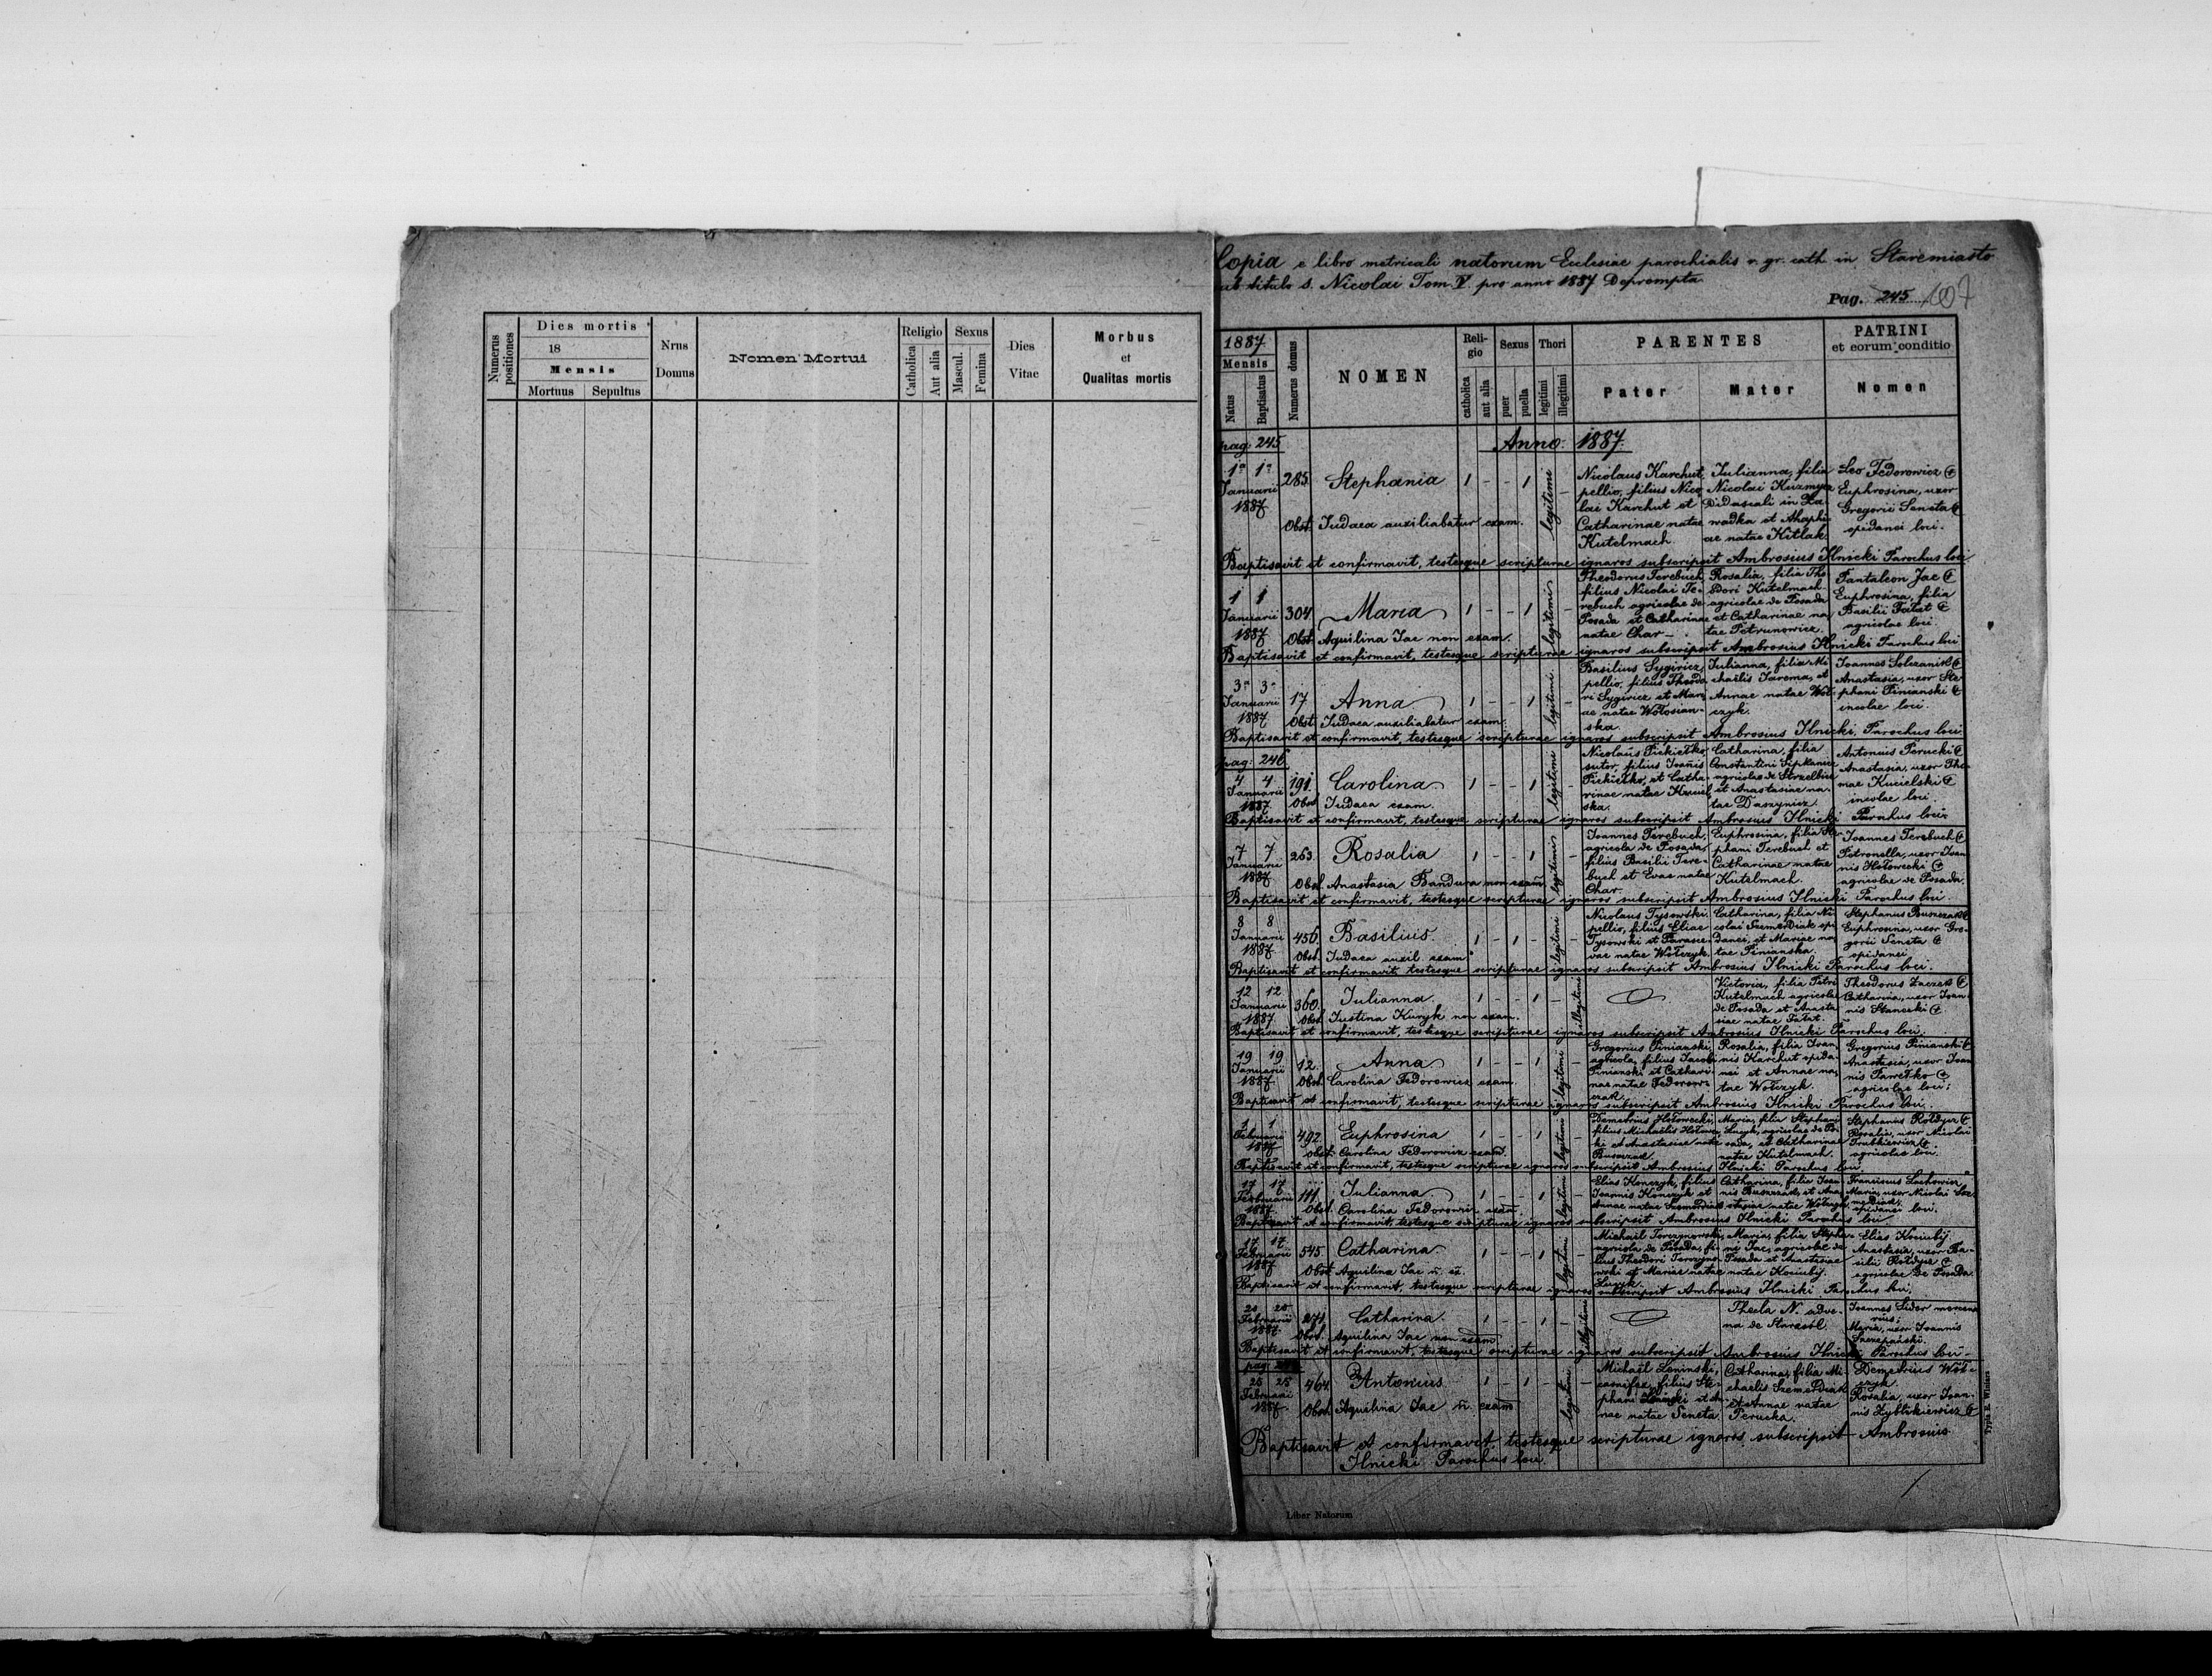 Numerus positiones
Dies mortis
18
Mensis
Mortuus Sepultus
Nrus Domus
Nomen Mortui
Religio
Catholica
Aut alia
Sexus
Mascul.
Femina
Dies Vitae
Morbus
et
Qualitas mortis
Copia e libro metricali natorum Ecclesiae parochialis r. gr. cath. in Staremiasto
sub titulo S. Nicolai Tom. V. pro anno 1887 Deprompta
Pag. 245 107
1887
Mensis
Natus
Baptisatus
Numerus domus
NOMEN
Religio
catholica
aut alia
Sexus
puer
puella
Thori
legitimi
illegitimi
PARENTES
Pater
Mater
PATRINI
et eorum conditio
Nomen
pag. 245 Anno 1887.
1a 1a
Januarii
1887
285
Stephania
1 - - 1 legitimi -
Nicolaus Karchut
pellio, filius Nico
lai Karchut et
Catharinae natae
Kutelmach
Julianna, filia
Nicolai Kuzmycz
Didascali in
et
ae natae Kitlak
Leo Fedorowicz
Euphrosina, uxor
Gregorii Seneta
opidanei loci.
Obst. Judaea auxiliabatur exam.
Baptisavit et confirmavit, testesque scripturae ignaros subscripsit Ambrosius Ilnicki Parochus loci
1 1
Januarii
1887
304
Maria
1 - - 1 legitimi -
Theodorus Terebuch
filius Nicolai Te-
rebuch agricolae de
Posada et Catharinae
natae Char-
Rosalia, filia The
odori Kutelmach
agricolae de Posada
et Catharinae na
tae Petrunowicz.
Pantaleon Jac
Euphrosina, filia
Basilii Fatat
agricolae loci.
Obst. Aquilina Jac non exam.
Baptisavit et confirmavit, testesque scripturae ignaros subscripsit Ambrosius Ilnicki Parochus loci
3a 3a
Januarii
1887
17
Anna
1 - - 1 legitimi -
Basilius Sygiricz,
pellio, filius Theodo
ri Sygiricz et Mari
ae natae Wołosian-
ska.
Julianna, filia Mi
chaëlis Jarema, et
Annae natae Woł-
czyk.
Joannes
Anastasia, uxor Ste
phani Pinianski
incolae loci.
Obst. Judaea auxiliabatur exam.
Baptisavit et confirmavit, testesque scripturae ignaros subscripsit Ambrosius Ilnicki, Parochus loci
pag. 246
4 4
Januarii
1887
191.
Carolina
1 - - 1 legitimi -
Nicolaus Pickiełko
sutor, filius Joannis
Pickiełko, et Catha-
rinae natae
ska.
Catharina, filia
Constantini
agricolae de Strzelbice
et Anastasiae na-
tae Daszynicz.
Antonius Perucki
Anastasia, uxor Tho-
mae Kucielski
incolae loci.
Obst. Judaea exam.
Baptisavit et confirmavit, testesque scripturae ignaros subscripsit Ambrosius Ilnicki Parochus loci
7 7
Januarii
1887
263
Rosalia
1 - - 1 legitimi -
Joannes Terebuch,
agricola de Posada,
filius Basilii Tere-
buch et Evae natae
Char.
Euphrosina, filia Ste-
phani Terebuch et
Catharinae natae
Kutelmach.
Joannes Terebuch
Petronella, uxor Joan
nis Hołowecki
agricolae de Posada.
Obst. Anastasia Bandura non exam.
Baptisavit et confirmavit, testesque scripturae ignaros subscripsit Ambrosius Ilnicki Parochus loci.
8 8
Januarii
1887
456
Basilius.
1 - 1 - legitimi -
Nicolaus Tysowski
pellio, filius Eliae
Tysowski et Parasce
vae natae Wołczyk.
Catharina, filia Ni
colai Szemerdiak opi
danei, et Mariae na
tae Pinianska.
Stephanus Buszczak
Euphrosina, uxor Gre-
gorii Seneta
opidanei
Obst. Judaea auxil. exam.
Baptisavit et confirmavit testesque scripturae ignaros subscripsit Ambrosius Ilnicki Parochus loci.
12 12
Januarii
1887
360.
Julianna.
1 - - 1 - illegitimi
Victoria, filia Petri
Kutelmach agricolae
de Posada et Anasta
siae natae Fatat.
Theodorus
Catharina, uxor Joan
nis
Obst. Justina Kuryk non exam.
Baptisavit et confirmavit, testesque scripturae ignaros subscripsit Ambrosius Ilnicki Parochus loci.
19 19
Januarii
1887
12.
Anna
1 - - 1 legitimi -
Gregorius Pinianski,
agricola, filius Jacobi
Pinianski et Cathari-
nae natae Fedorow-
czak
Rosalia, filia Joan
nis Karchut opida-
nei et Annae na-
tae Wołczyk.
Gregorius Pinianski
Anastasia, uxor Joan
nis Pawełko
agricolae loci;
Obst. Carolina Fedorowicz exam.
Baptisavit et confirmavit, testesque scripturae ignaros subscripsit Ambrosius Ilnicki Parochus loci.
1 1
Februarii
1887
492
Euphrosina
1 - - 1 legitimi -
Demetrius Hołowecki,
filius Michaëlis Hołowec
ki et Anastasiae natae
Buszczak
Maria, filia Stephani
agricolae de Po
sada, et Catharinae
natae Kutelmach.
Stephanus Rołdyr
Rosalia, uxor Nicolai
agricolae loci.
Obst. Carolina Fedorowicz exam.
Baptisavit et confirmavit, testesque scripturae ignaros subscripsit Ambrosius Ilnicki Parochus loci
17 17
Februarii
1887
111.
Julianna.
1 - - 1 legitimi -
Elias Konczyk, filius
Joannis Konczyk et
Annae natae Szemerdiak
Catharina, filia Joan
nis Buszczak, et Ana
stasiae natae Wołczyk
Franciscus Lachowicz
Maria, uxor Nicolai Sze
merdiak
opidanei loci.
Obst. Carolina Fedorowicz exam.
Baptisavit et confirmavit, testesque scripturae ignaros subscripsit Ambrosius Ilnicki Parochus loci
17 17
Februarii
1887
545
Catharina
1 - - 1 legitimi -
Michaël Torczynowski,
agricola de Posada, fi-
lius Theodori Torczyno
wski et Mariae natae
Maria, filia Stepha-
ni Jac, agricolae de
Posada et Anastasiae
natae Kociubij.
Elias Kociubij
Anastasia, uxor Ba-
silii Rołdyr
agricolae de Posada.
Obst. Aquilina Jac n. ex.
Baptisavit et confirmavit, testesque scripturae ignaros subscripsit Ambrosius Ilnicki Parochus loci.
20 20
Februarii
1887
271.
Catharina.
1 - - 1 - illegitimi
Thecla N. adve-
na de Staresól.
Joannes Sidor mercena
rius;
Maria, uxor Joannis
Szczepański.
Obst. Aquilina Jac non exam
Baptisavit et confirmavit, testesque scripturae ignaros subscripsit Ambrosius Ilnicki Parochus loci -
25 25
Februarii
1887
464
Antonius
1 - 1 - legitimi -
Michaël Leninski,
carnifex, filius Ste-
phani et An-
nae natae Seneta
Catharina, filia Mi-
chaëlis Szemerdiak
et Annae natae
Perucka.
Demetrius Woł-
czyk
Rosalia, uxor Joan-
nis Zyblikiewicz
Obst. Aquilina Jac n. exam
Baptisavit et confirmavit, testesque scripturae ignaros subscripsit Ambrosius
Ilnicki Parochus loci.
Liber Natorum